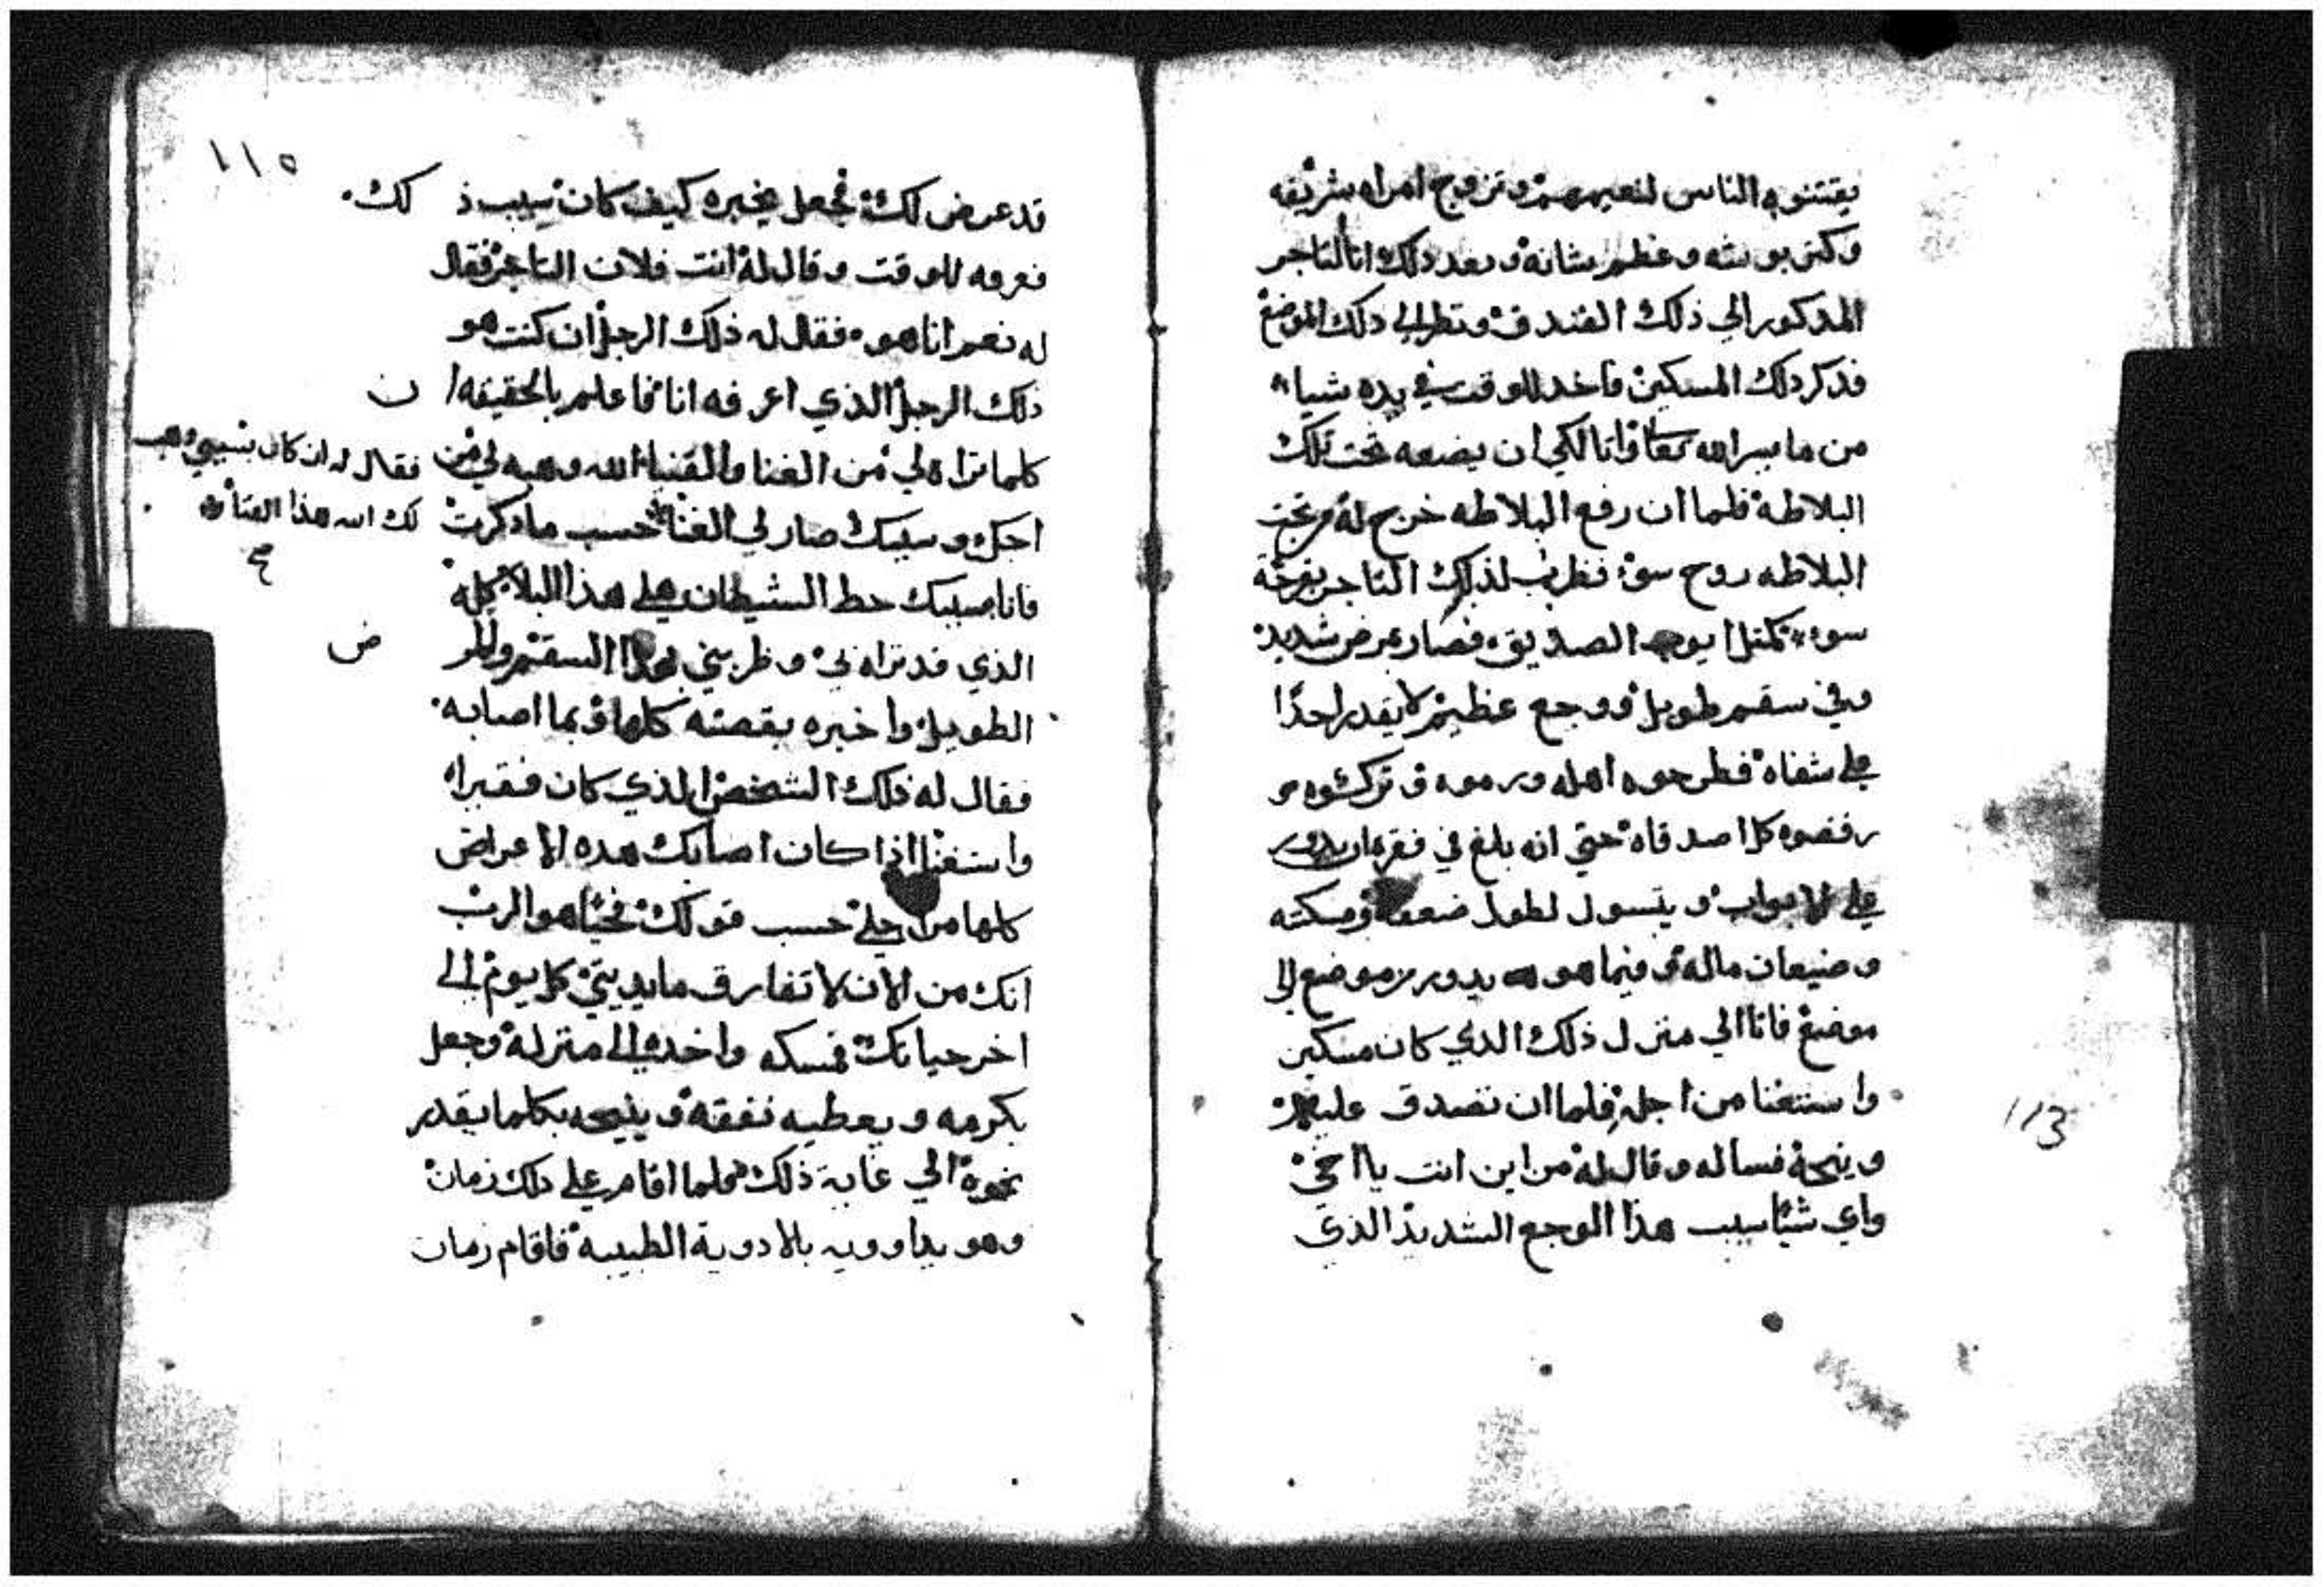 يقتنوه الناس لنعيمهم وتزوج امراه شريفه
وكتر بوشه وعظم شانه وبعد ذلك اتا التاجر
المدكور الي ذلك الفندق ونظر الي دلك الموضع
فدكر دلك المسكين فاخد للوقت في يده شيا
من ما يسر الله تعا واتا لكي ان يضعه تحت تلك
البلاطة فلما ان رفع البلاطه خرج له من تحت
البلاطه روح سو فظرب لذلك التاجر بفرحة
سوء كمتل ايوب الصديق فصار عرض شديد
وفي سقم طويل ووجع عظيم لا يقدر احدًا
علي شفاه فطرحوه اهله ورموه وتركوه و
رفضوه كل اصدقاه حتي انه بلغ في فقر كان يدور
علي الابواب ويتسول لطول ضعفه ومسكنته
وضيعان ماله وفيما هو يدور من موضع الي
موضع فاتا الي منزل ذلك الدي كان مسكين
واستغنا من اجله فلما ان تصدق عليه
وينحه فساله وقال له من اين انت يا اخي
واي شيا سبب هذا الوجع الشديد الذي
113
١١٥
قد عرض لك فجعل يخبره كيف كان سبب ذ لك
فعرفه للوقت وقال له انت فلان التاجر فقال
له نعم انا هو فقال له ذلك الرجل ان كنت هو
ذلك الرجل الذي اعرفه انا فاعلم بالحقيقه ا ن
كلما تراه لي من الغنا والقنيا الله وهبه لي من
اجلك وسببك صار لي الغنا حسب مادكرت
فقال له ان كان بسببي وهب
لك الله هذا الغنا
فانا بسببك حط الشيطان علي هذا البلا كله
الذي قد تراه لي وظربني بهذا السقم والمر ض
الطويل واخبره بقصته كلها وبما اصابه
فقال له ذلك الشخص الذي كان فقيرا
واستغنا اذا كان اصابك هده الاعراض
كلها من اجلي حسب قولك فحيا هو الرب
انك من الان لا تفارق مايديتي كل يوم الي
اخر حياتك فمسكه واخده الي منزله وجعل
يكرمه ويعطيه نفقه وينيحه بكلما يقدر
نحوه الي غاية ذلك فلما اقام علي دلك زمان
وهو يداوويه بالادوية الطيبة فاقام زمان